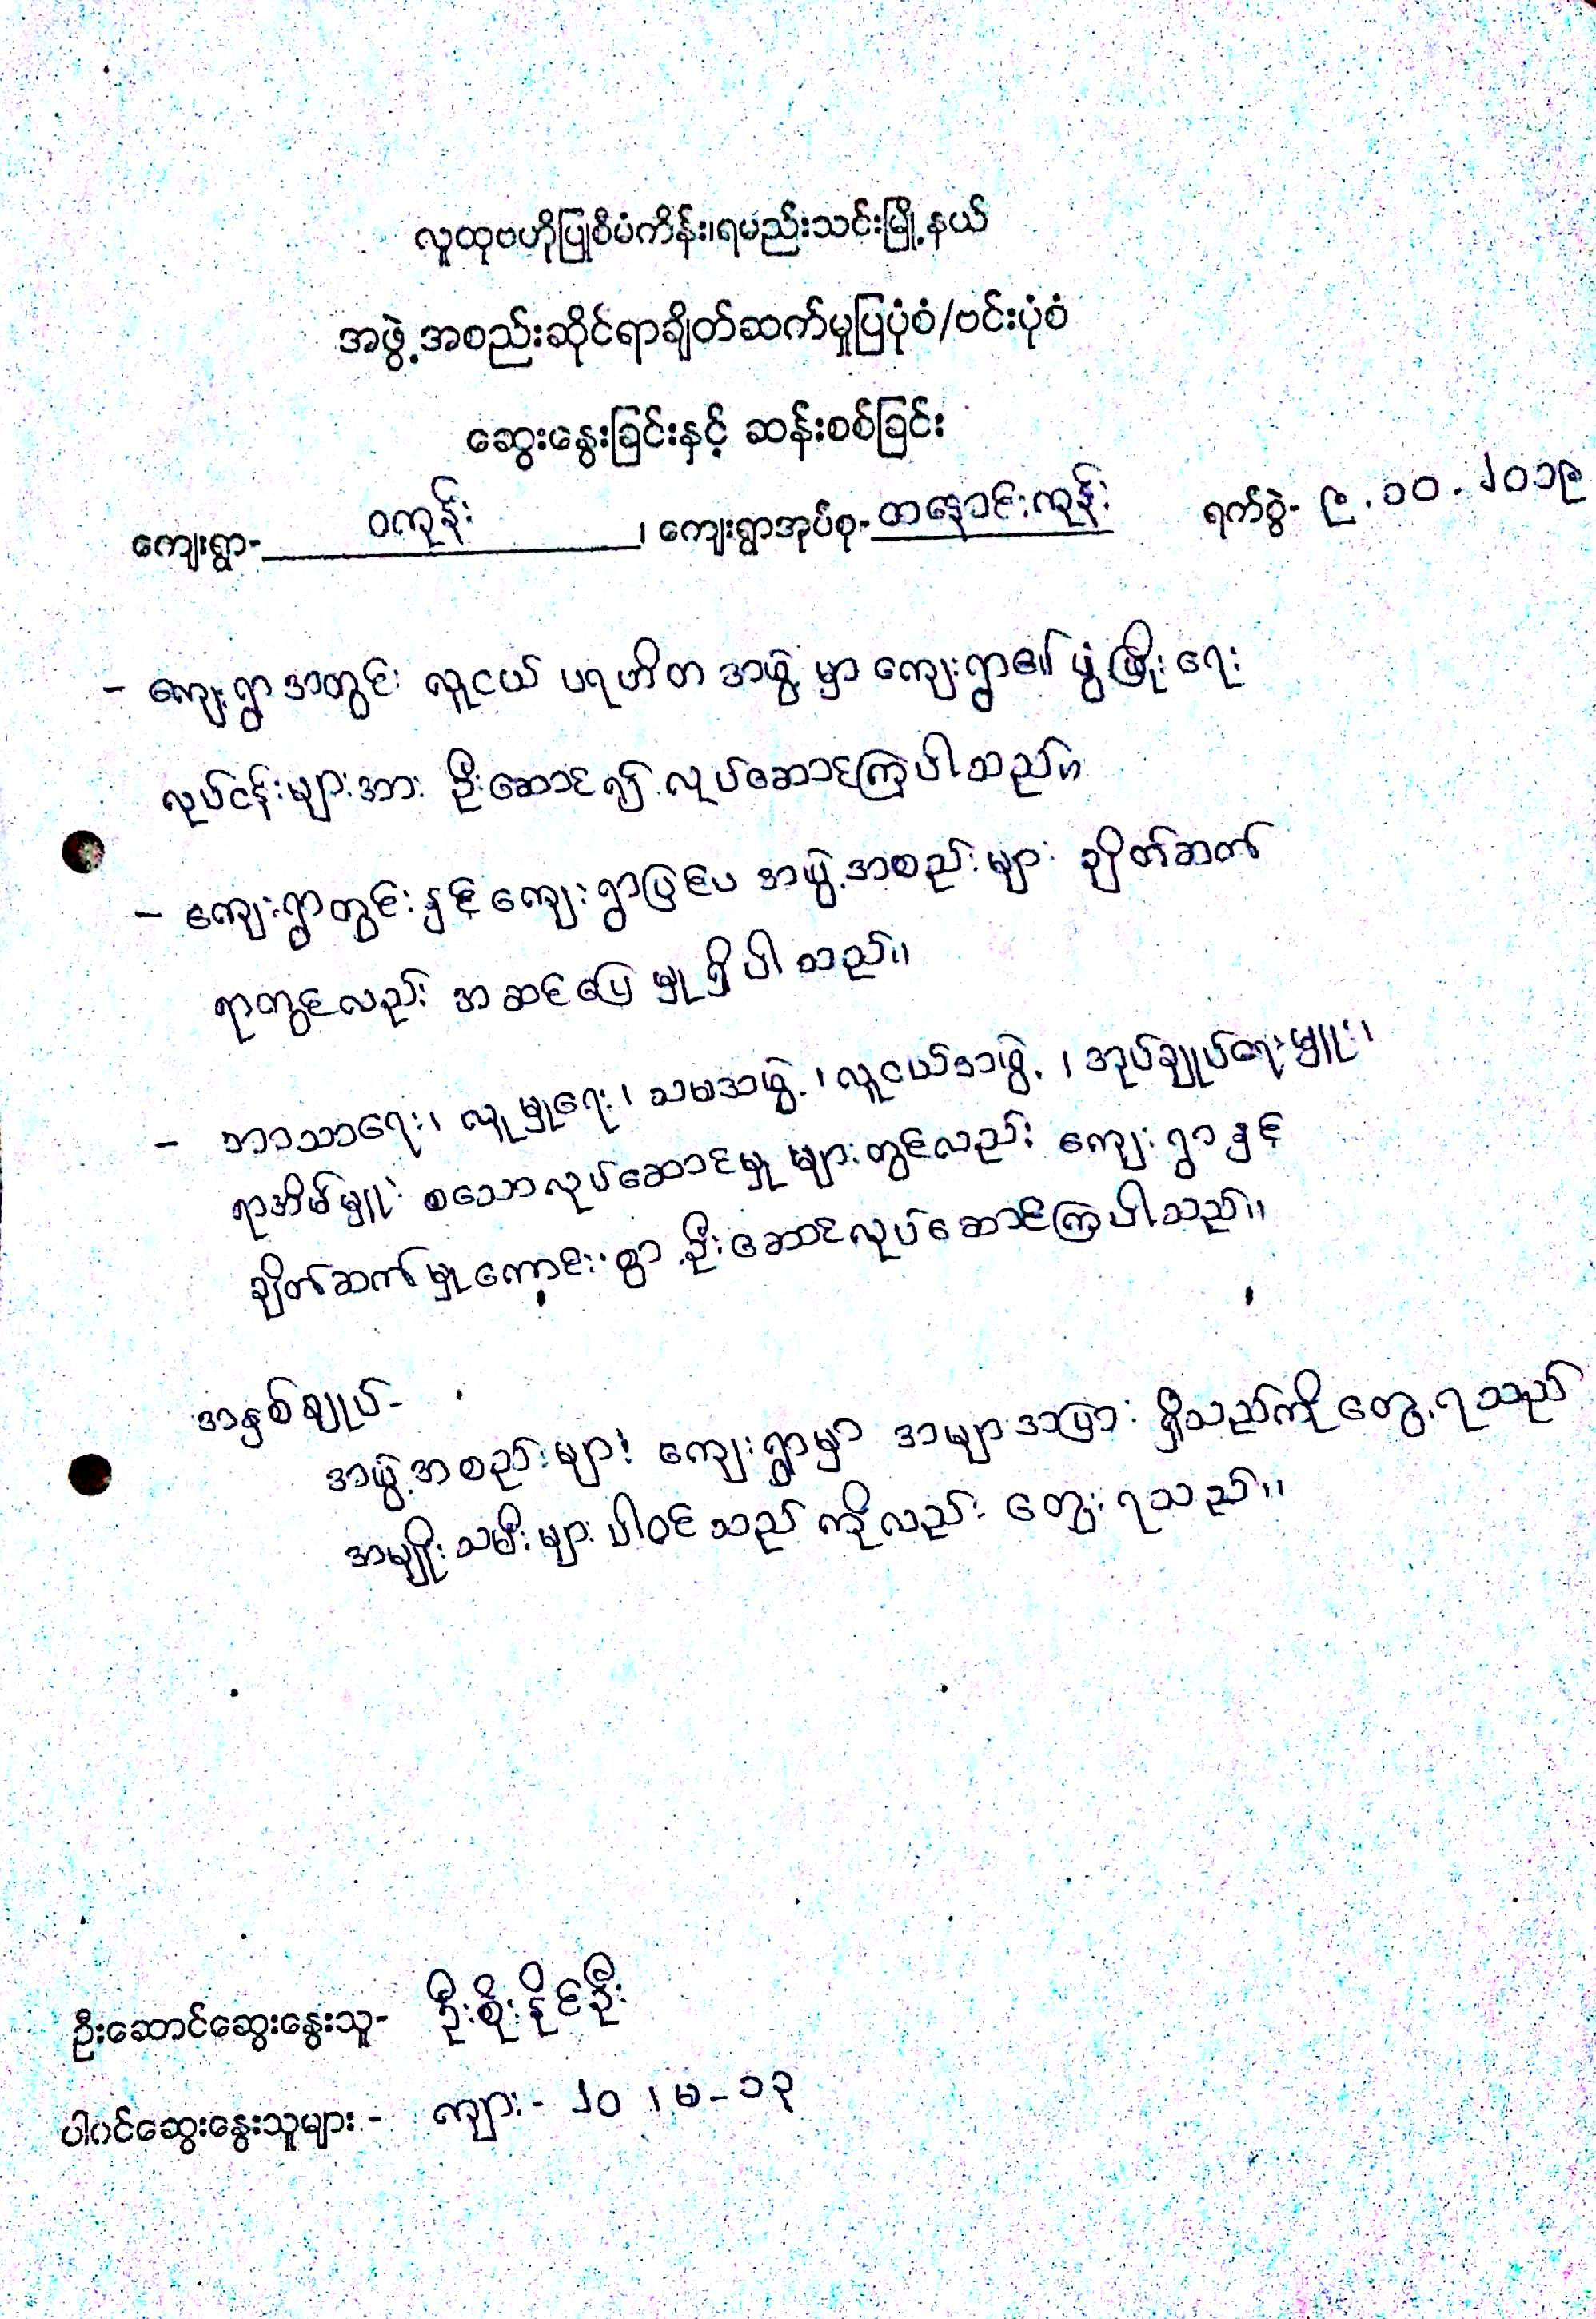 လူထုဗဟိုပြုစီမံကိန်း၊ရမည်းသင်းမြို့နယ်
အဖွဲ့အစည်းဆိုင်ရာချိတ်ဆက်မှုပြပုံစံ/ဗင်းပုံစံ
ဆွေးနွေးခြင်းနှင့် ဆန်းစစ်ခြင်း
ကျေးရွာ- ဝကုန်း ၊ ကျေးရွာအုပ်စု- တနောင်းကုန်း ရက်စွဲ- ၉.၁၀.၂၀၁၉
- ကျေးရွာအတွင်း လူငယ် ပရဟိတ အဖွဲ့ မှာ ကျေးရွာ၏ ဖွံ့ဖြိုးရေး
လုပ်ငန်းများအား ဦးဆောင်၍ လုပ်ဆောင်ကြပါသည်။
- ကျေးရွာတွင်းနှင့် ကျေးရွာပြင်ပ အဖွဲ့အစည်းများ ချိတ်ဆက်
ရာတွင်လည်း အဆင်ပြေမှုရှိပါသည်။
- ဘာသာရေး၊ လူမှုရေး၊ သမအဖွဲ့၊ လူငယ်အဖွဲ့၊ အုပ်ချုပ်ရေးမှူး၊
ရာအိမ်မှူး စသောလုပ်ဆောင်မှုများတွင်လည်း ကျေးရွာနှင့်
ချိတ်ဆက်မှုကောင်းစွာ ဦးဆောင်လုပ်ဆောင်ကြပါသည်။
အနှစ်ချုပ်-
အဖွဲ့အစည်းများ ကျေးရွာမှာ အများအပြား ရှိသည်ကိုတွေ့ရသည်
အမျိုးသမီးများ ပါဝင်သည် ကိုလည်း တွေ့ရသည်။
ဦးဆောင်ဆွေးနွေးသူ- ဦးစိုးနိုင်ဦး
ပါဝင်ဆွေးနွေးသူများ- ကျား- ၂၀ ၊ မ- ၁၃